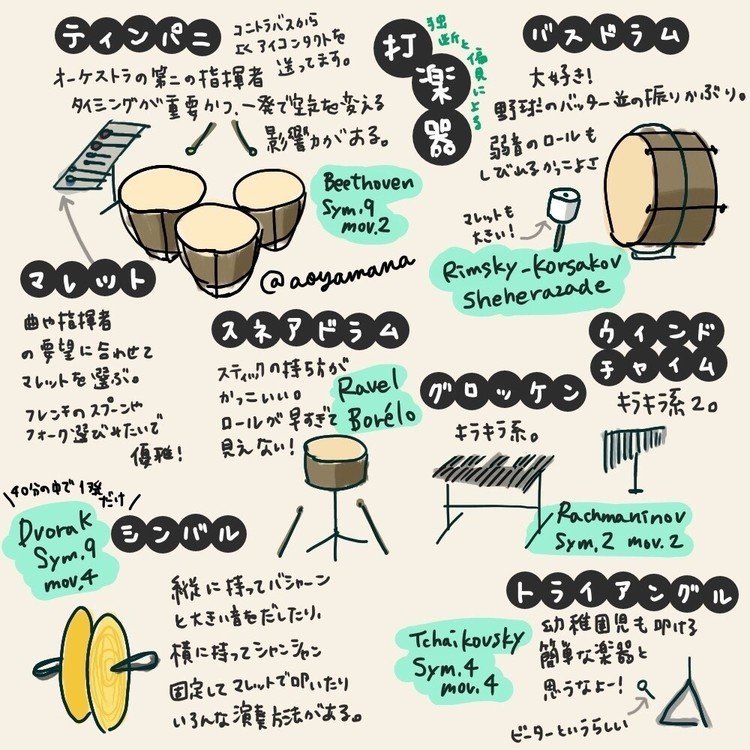 打楽器
独断と偏見による
ティンパニ
コントラバスから
よくアイコンタクトを
送ってます。
オーケストラの第二の指揮者
タイミングが重要かつ、一発で空気を変える
影響力がある。
Beethoven
Sym.9
mov.2
@aoyamana
バスドラム
大好き!
野球のバッター並の振りかぶり。
弱音のロールも
しびれるかっこよさ
マレットも
大きい!
Rimsky-Korsakov
Sheherazade
マレット
曲や指揮者
の要望に合わせて
マレットを選ぶ。
フレンチのスプーンや
フォーク選びみたいで
優雅!
スネアドラム
スティックの持ち方が
かっこいい。
ロールが早すぎて
見えない!
Ravel
Borélo
グロッケン
キラキラ系。
ウィンド
チャイム
キラキラ系2。
Rachmaninov
Sym.2 mov.2
\40分の中で1発だけ/
Dvorak
Sym.9
mov.4
シンバル
縦に持ってバシャーン
と大きい音をだしたり、
横に持ってシャンシャン
固定してマレットで叩いたり
いろんな演奏方法がある。
トライアングル
幼稚園児も叩ける
簡単な楽器と
思うなよー!
ビーターというらしい
Tchaikovsky
Sym.4
mov.4